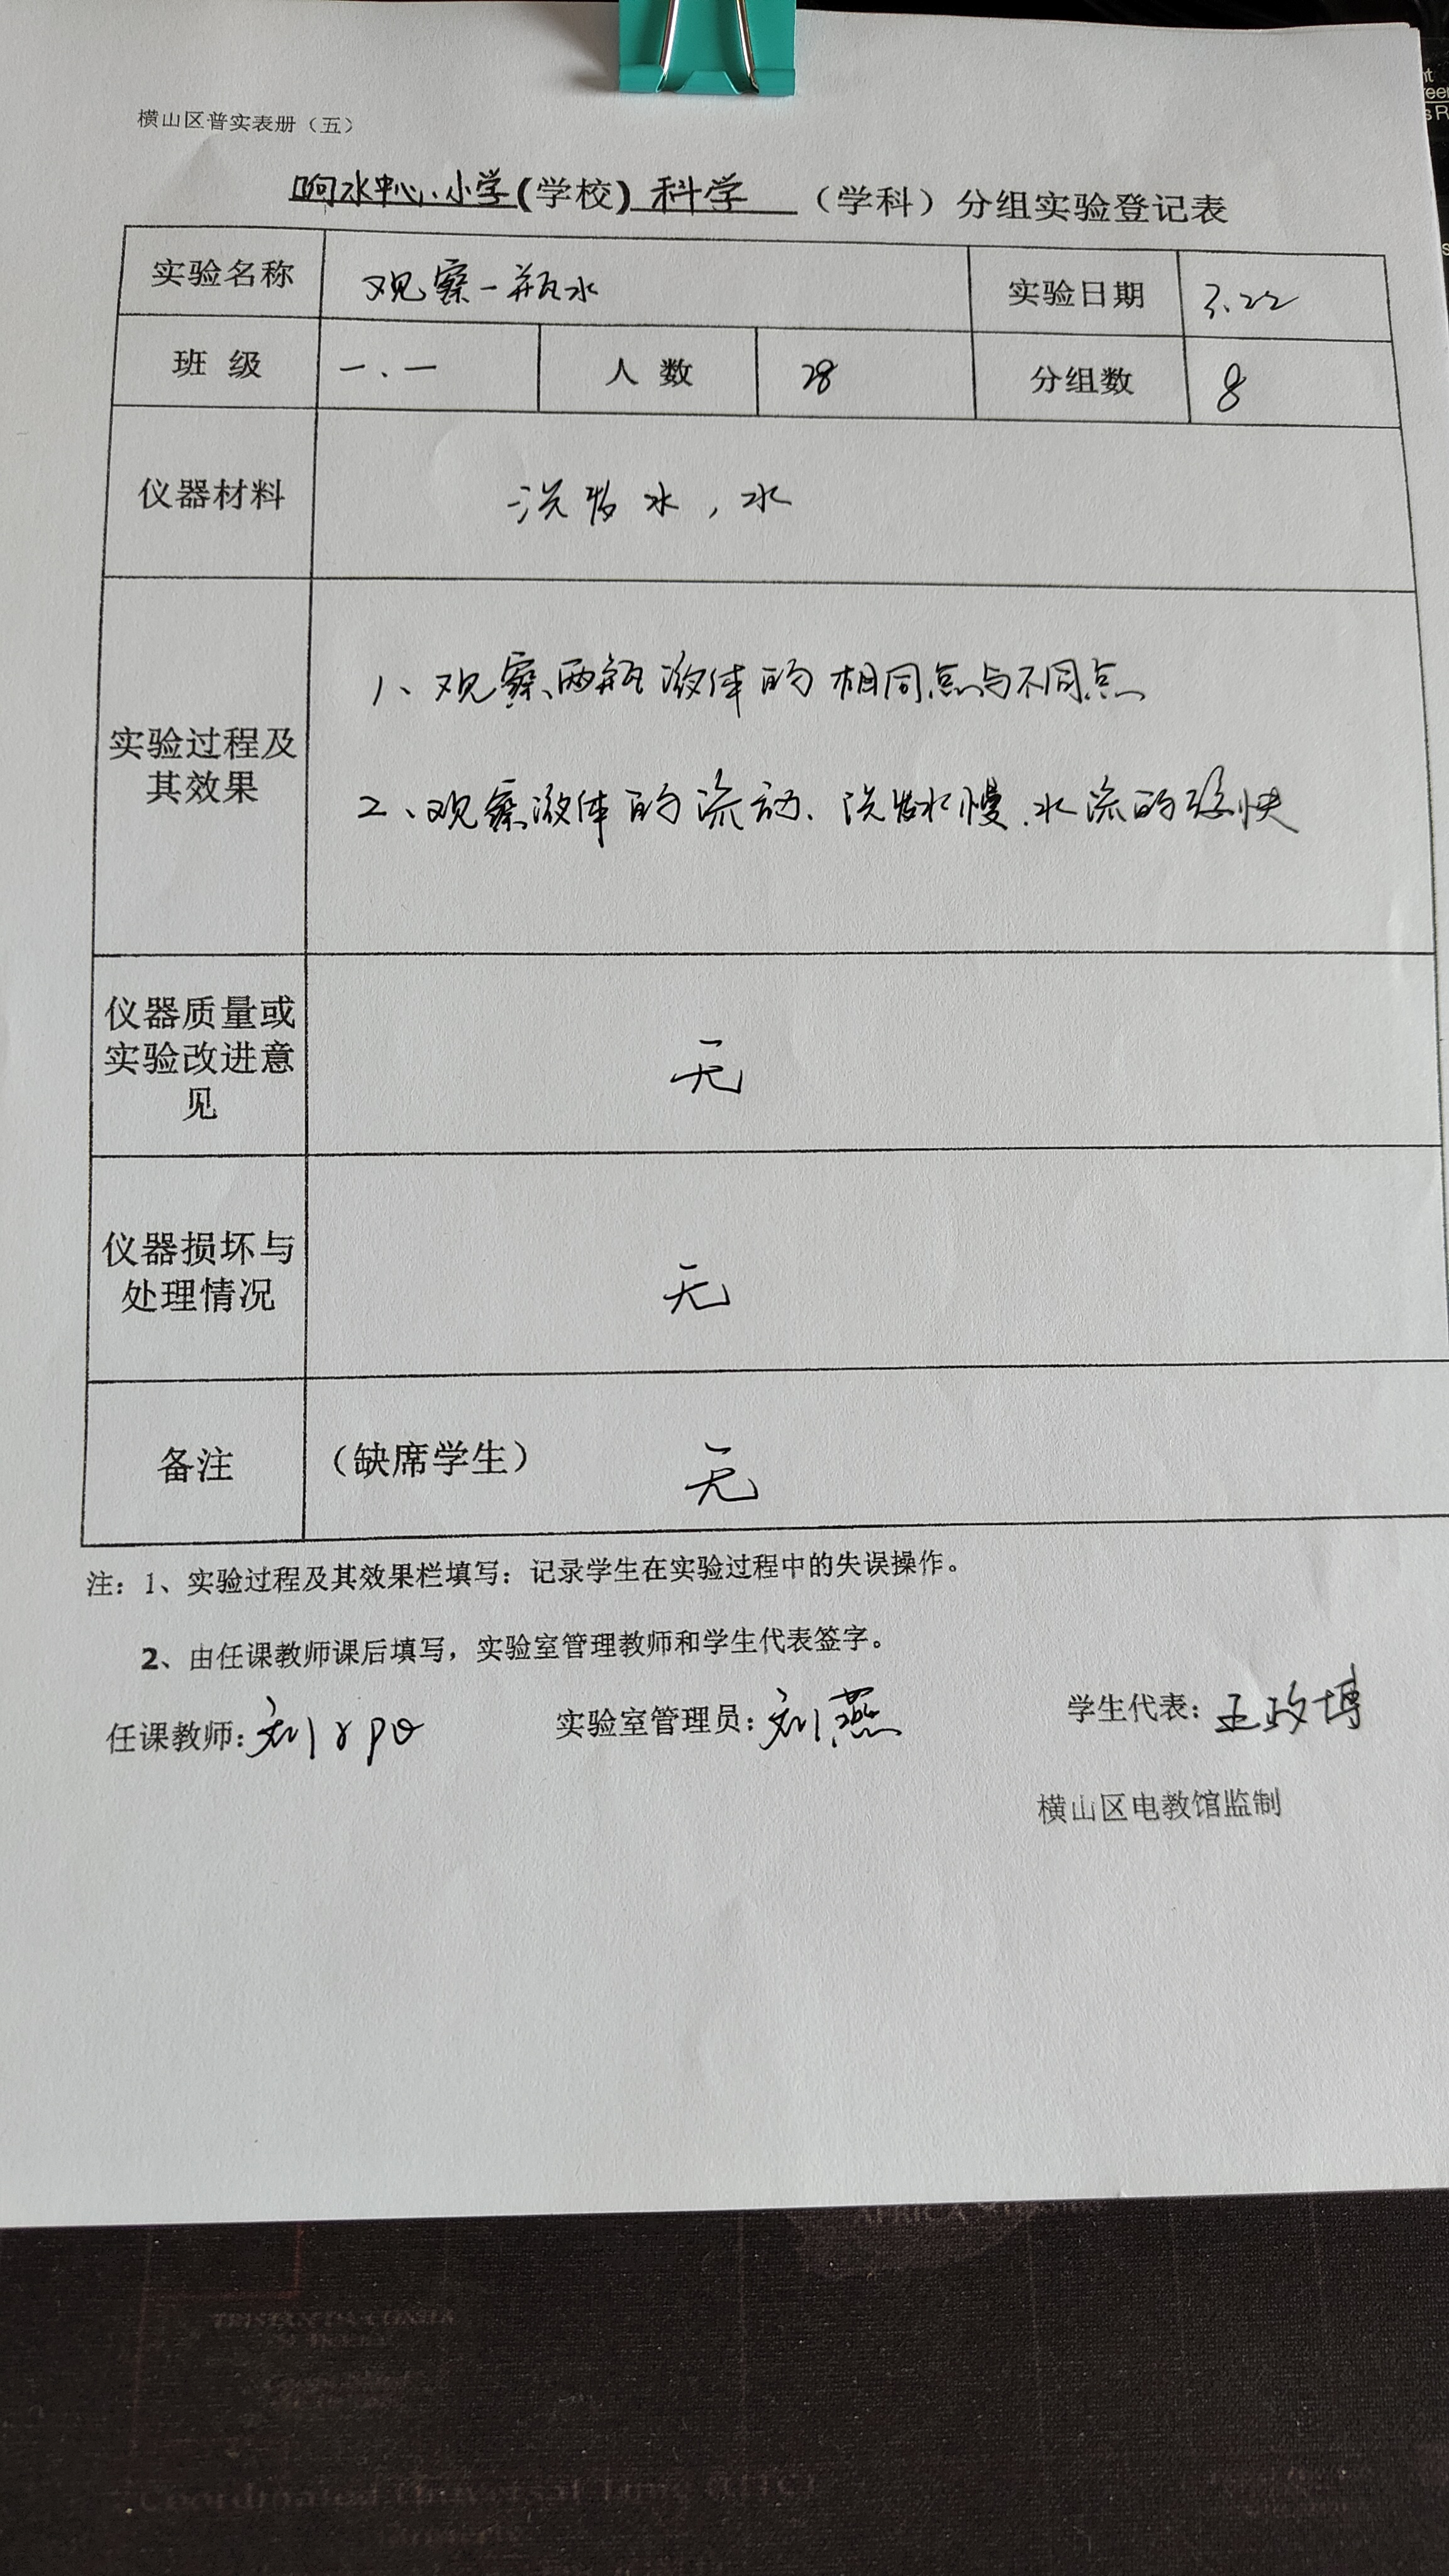 横山区普实表册（五）
响水中心小学(学校) 科学 （学科）分组实验登记表
实验名称 观察一瓶水 实验日期 3.22
班 级 一.一 人 数 28 分组数 8
仪器材料 洗发水，水
1、观察两瓶液体的相同点与不同点
实验过程及
其效果
2、观察液体的流动、洗发水慢.水流的很快
仪器质量或
实验改进意
见
无
仪器损坏与
处理情况
无
备注 （缺席学生） 无
注：1、实验过程及其效果栏填写：记录学生在实验过程中的失误操作。
2、由任课教师课后填写，实验室管理教师和学生代表签字。
任课教师：刘 实验室管理员：刘燕 学生代表：王政博
横山区电教馆监制
AFRICA
TRISTAN DA CUNHA
Coordinated Universal Time (UTC)